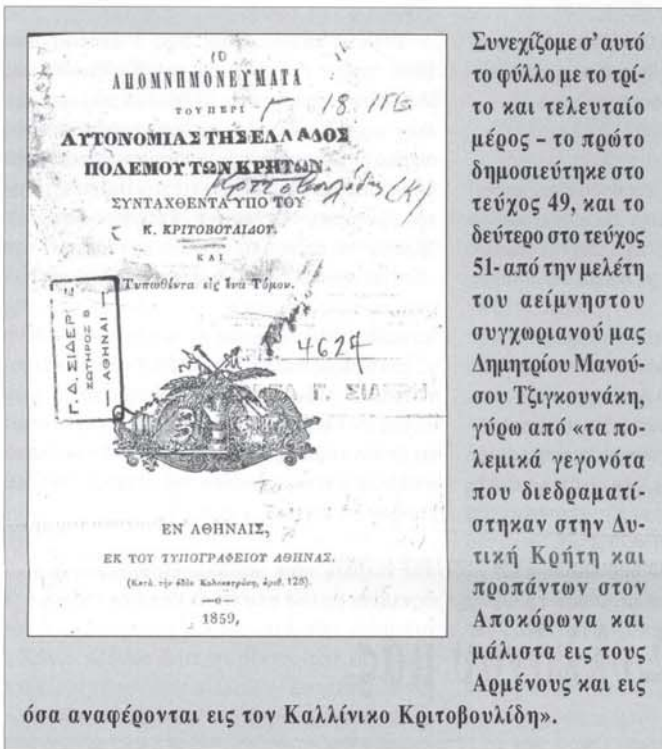 ΑΠΟΜΝΗΜΟΝΕΥΜΑΤΑ
ΤΟΥ ΠΕΡΙ
ΑΥΤΟΝΟΜΙΑΣ ΤΗΣ ΕΛΛΑΔΟΣ
ΠΟΛΕΜΟΥ ΤΩΝ ΚΡΗΤΩΝ.
ΣΥΝΤΑΧΘΕΝΤΑ ΥΠΟ ΤΟΥ
Κ. ΚΡΙΤΟΒΟΥΛΙΔΟΥ.
ΚΑΙ
Τυπωθέντα εἰς ἕνα Τόμον.
4627
Γ. Δ. ΣΙΔΕΡ
ΣΩΤΗΡΟΣ 8
— ΑΘΗΝΑΙ —
ΕΝ ΑΘΗΝΑΙΣ,
ΕΚ ΤΟΥ ΤΥΠΟΓΡΑΦΕΙΟΥ ΑΘΗΝΑΣ.
(Κατὰ τὴν ὁδὸν Κολοκοτρώνη, ἀριθ. 128).
1859,
Συνεχίζομε σ' αυτό
το φύλλο με το τρί-
το και τελευταίο
μέρος – το πρώτο
δημοσιεύτηκε στο
τεύχος 49, και το
δεύτερο στο τεύχος
51- από την μελέτη
του αείμνηστου
συγχωριανού μας
Δημητρίου Μανού-
σου Τζιγκουνάκη,
γύρω από «τα πο-
λεμικά γεγονότα
που διεδραματί-
στηκαν στην Δυ-
τική Κρήτη και
προπάντων στον
Αποκόρωνα και
μάλιστα εις τους
Αρμένους και εις
όσα αναφέρονται εις τον Καλλίνικο Κριτοβουλίδη».